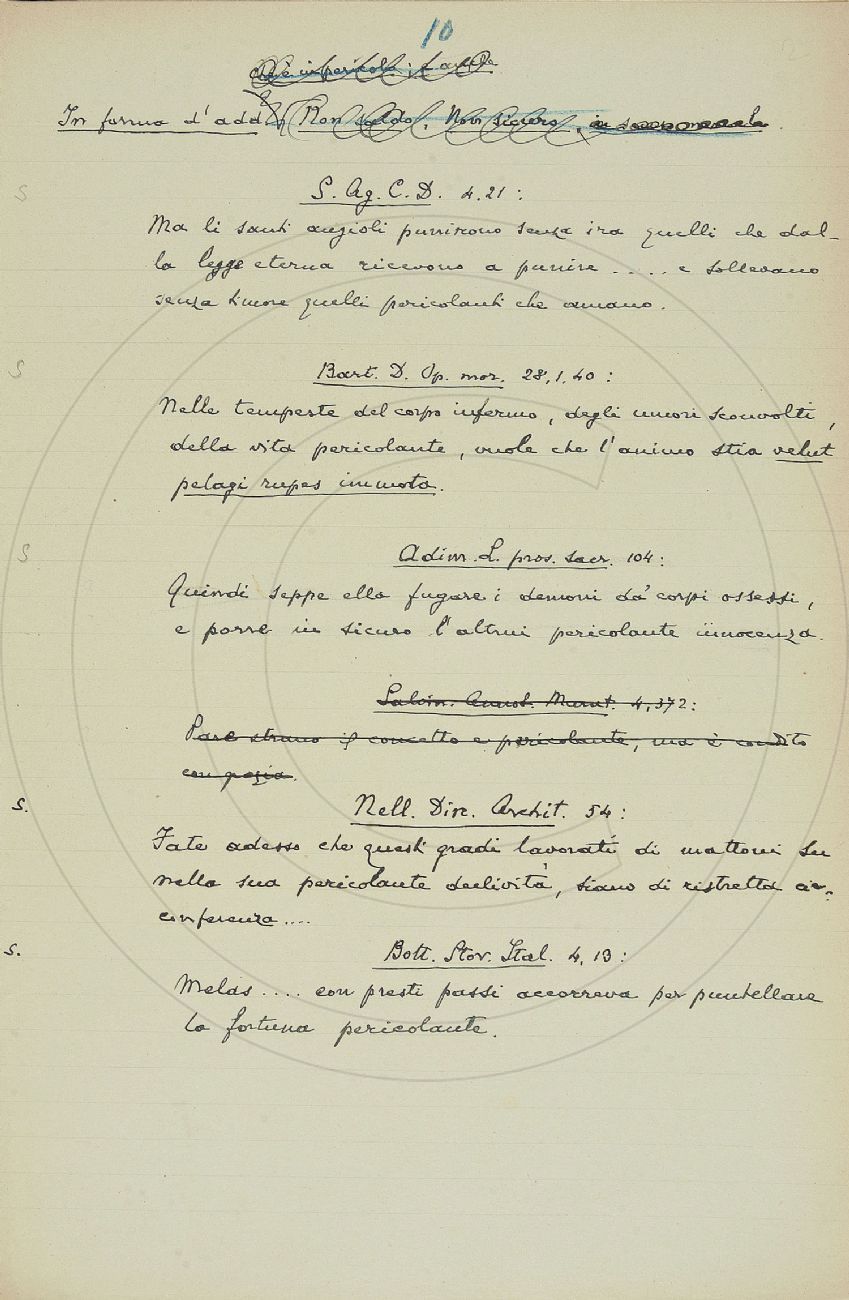 10
che è in pericolo
In forma d'add Non saldo, Non sicuro, in senso morale.
S S. Ag. C. D. 4.21:
Ma li santi angioli punirono senza ira quelli che dal-
la legge eterna ricevono a punire .... e sollevano
senza timore quelli pericolanti che amano.
S Bart. D. Op. mor. 28,1,40:
Nelle tempeste del corpo infermo, degli umori sconvolti,
della vita pericolante, vuole che l'animo stia velut
pelagi rupes immota.
S Adim. L. pros. sacr. 104:
Quindi seppe ella fugare i demoni da' corpi ossessi,
e porre in sicuro l'altrui pericolante innocenza.
Salvin. Annot. Murat. 4,372:
Pare strano il concetto e pericolante, ma è condito
con grazia.
S. Nell. Disc. Archit. 54:
Fate adesso che questi gradi lavorati di mattoni su
nella sua pericolante declività, siano di ristretta cir-
conferenza....
S. Bott. Stor. Ital. 4,13:
Melas .... con presti passi accorreva per puntellare
la fortuna pericolante.